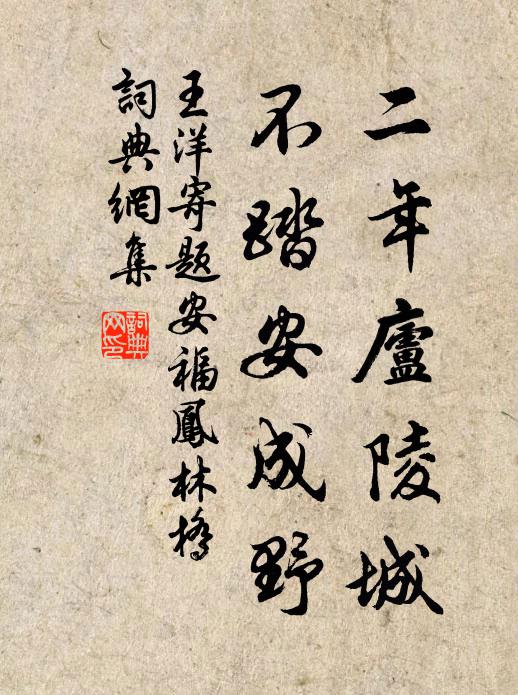 二年廬陵城
不踏安成野
王洋寄題安福鳳林橋
詞典網集
詞典網印